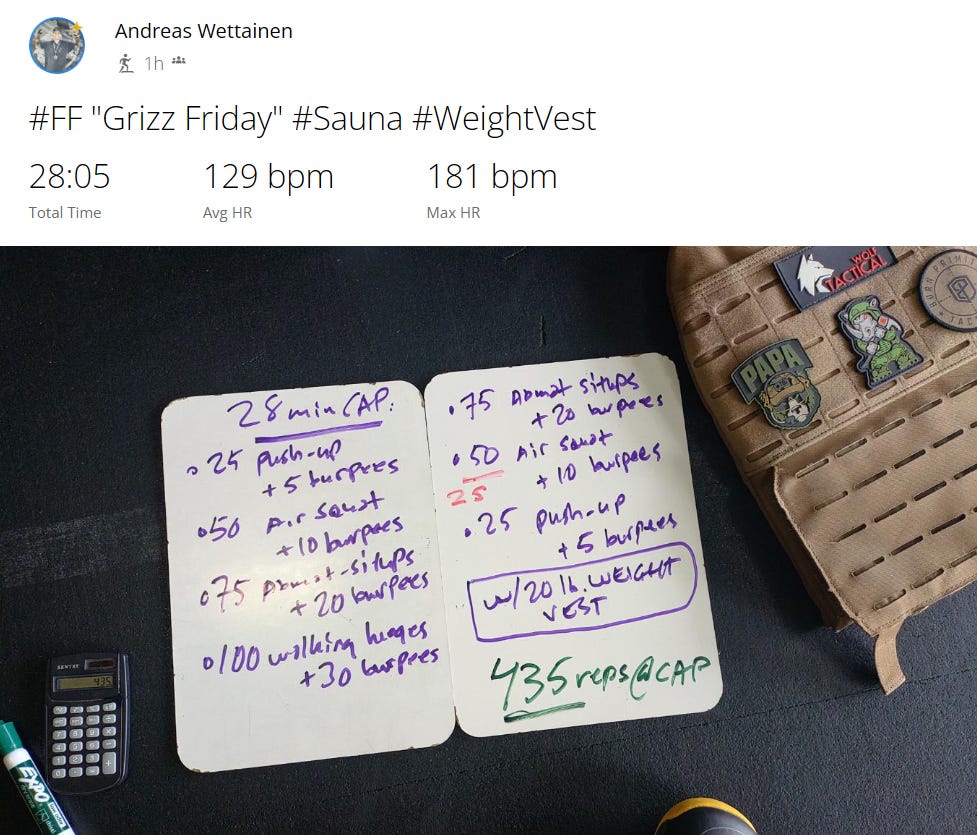 Andreas Wettainen
1h
#FF "Grizz Friday" #Sauna #WeightVest
28:05
129 bpm
181 bpm
Total Time
Avg HR
Max HR
28 min CAP:
.25 push-up
+ 5 burpees
.50 Air squat
+10 burpees
.75 Abmat-situps
+ 20 burpees
.100 walking lunges
+30 burpees
.75 Abmat situps
+ 20 burpees
.50 Air squat
25
+ 10 burpees
.25 push-up
+ 5 burpees
w/20 lb. WEIGHT
VEST
435 reps @ CAP
WOLF
TACTICAL
BURN PRIMIT
TAC
PAPA
SENTRY
435
EXPO